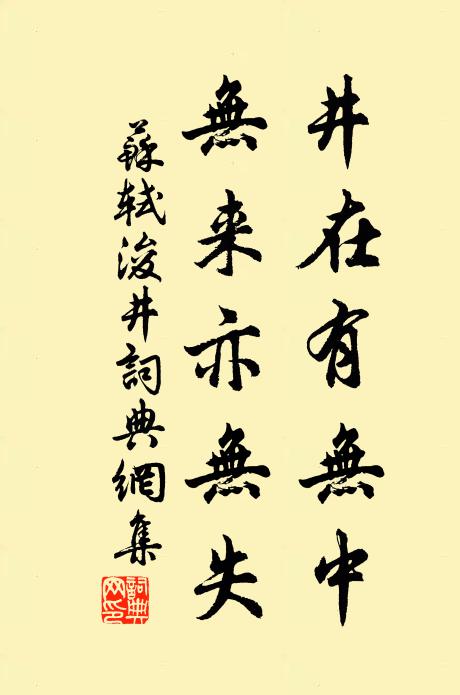 井在有無中
無来亦無失
蘇軾浚井詞典網集
詞典网印